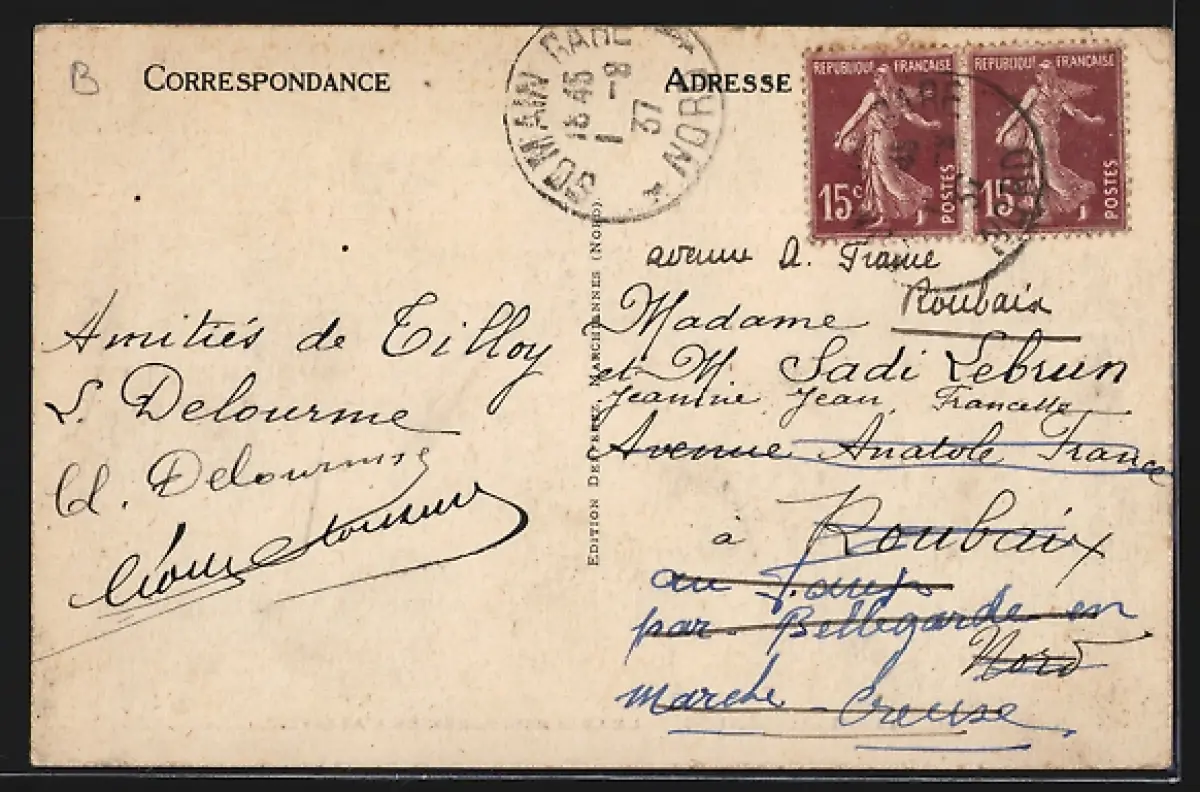 B
CORRESPONDANCE
ADRESSE
SOMAIN GARE
18 45
1 - 8
37
* NORD *
REPUBLIQUE FRANÇAISE
15c
POSTES
REPUBLIQUE FRANÇAISE
15c
POSTES
GARE
NORD
Amitiés de Tilloy
L. Delourme
Cl. Delourme
EDITION MARCHIENNES (NORD).
avenue A. France
Roubaix
Madame
et M. Sadi Lebrun
Jeannine, Jean, Francette
Avenue Anatole France
à Roubaix
au
par Bellegarde en
Nord
marche Creuse